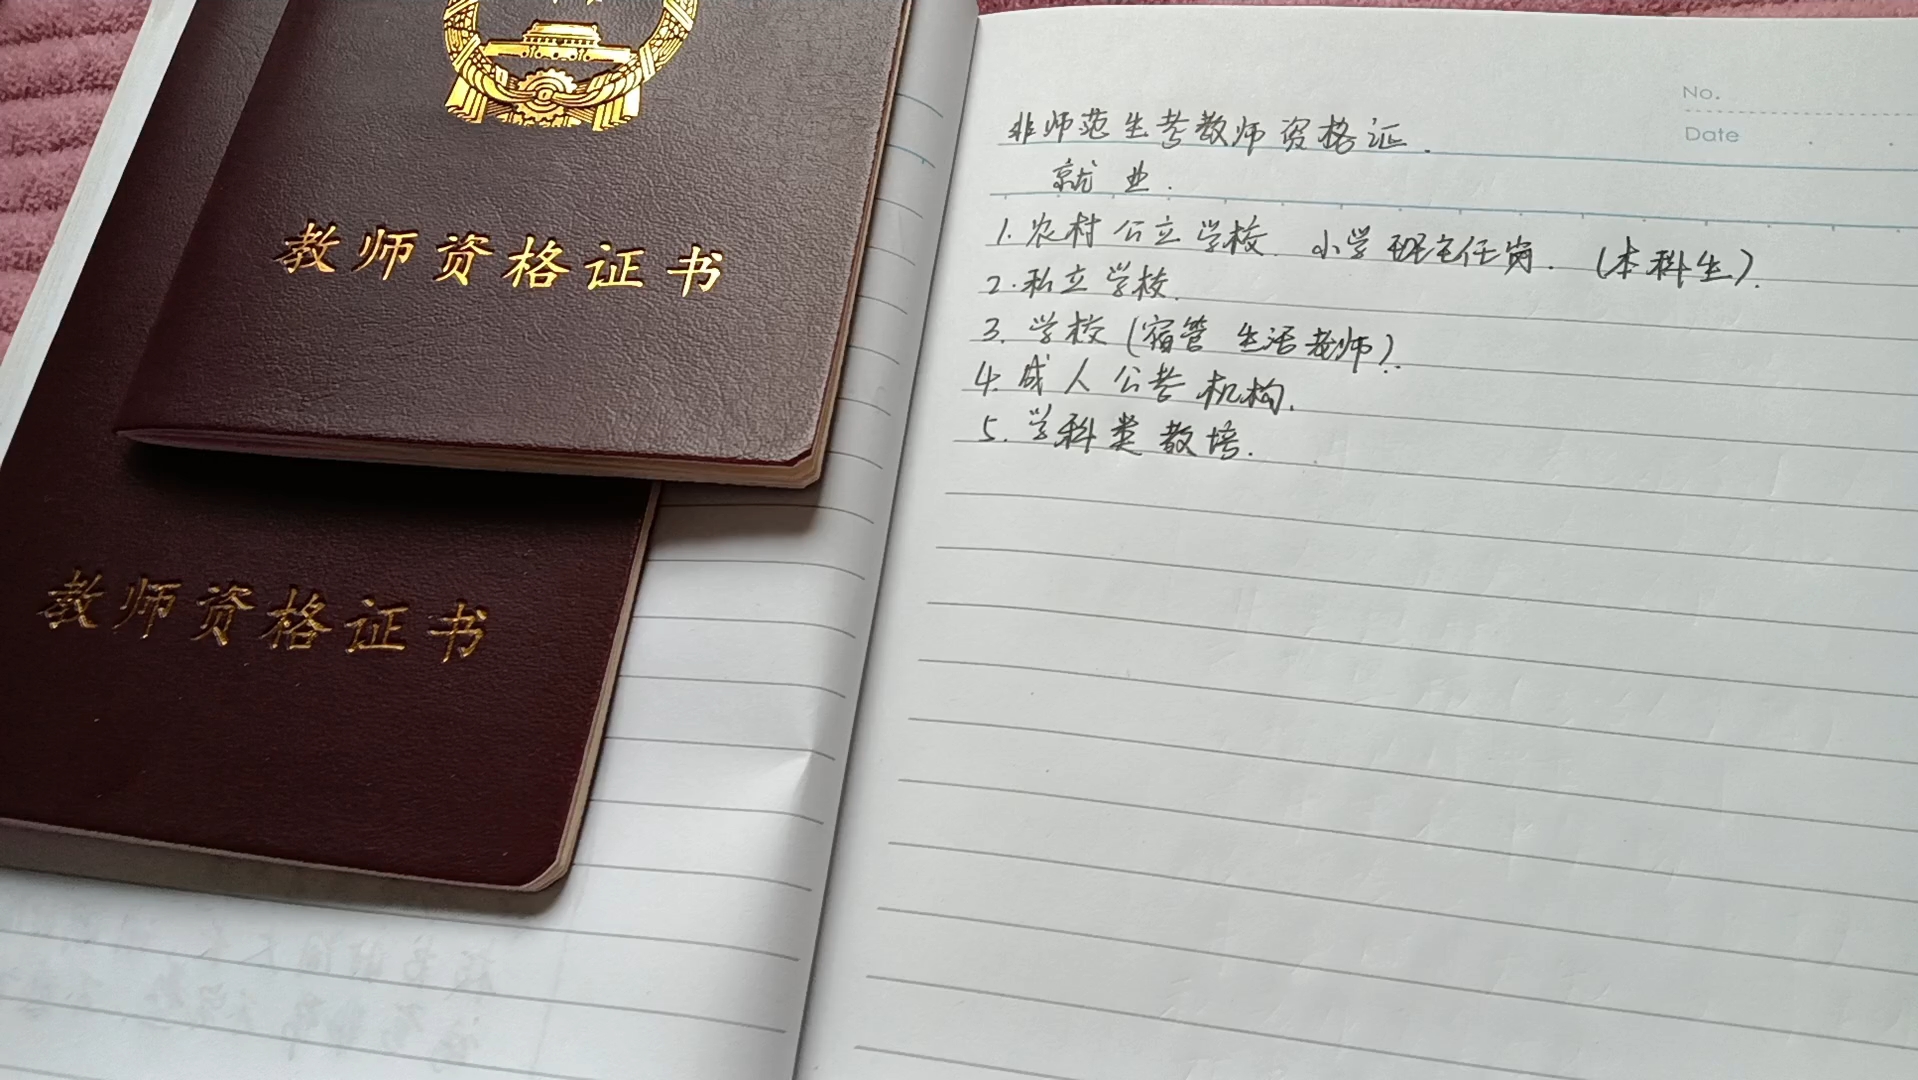 教师资格证书
教师资格证书
No.
Date
非师范生考教师资格证.
就业.
1. 农村公立学校. 小学班主任岗. (本科生).
2. 私立学校.
3. 学校(宿管 生活老师).
4. 成人公考机构.
5. 学科类教培.